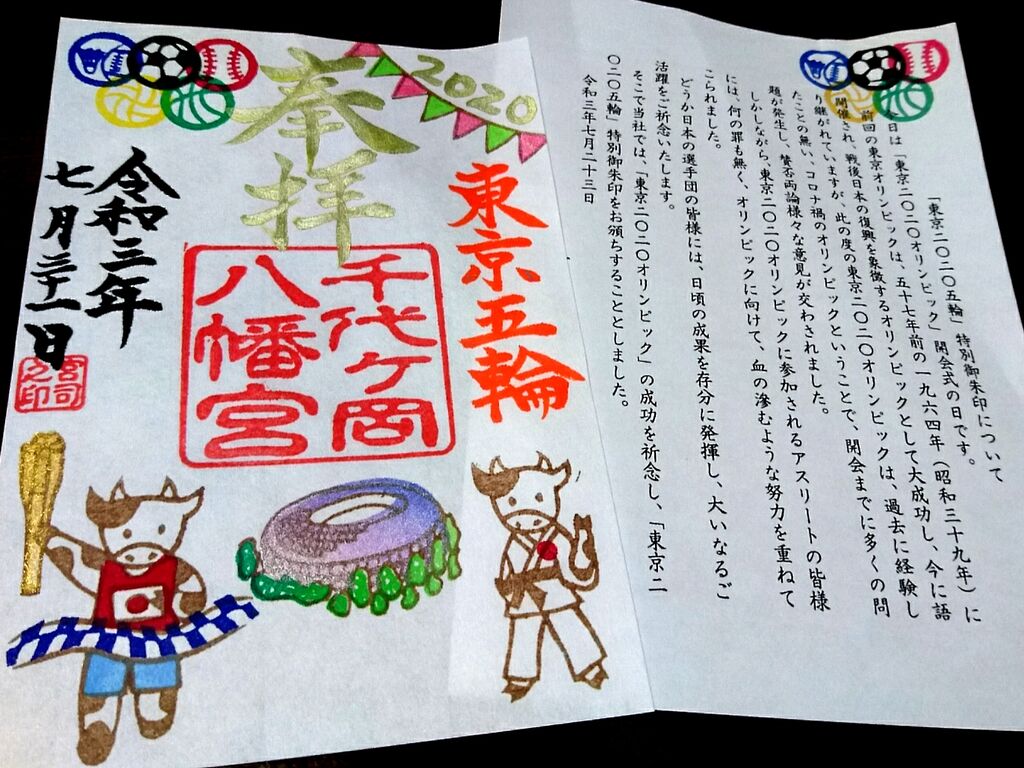 2020
東京五輪
奉拝
千代ヶ岡
八幡宮
令和三年
七月二十一日
宮司
之印
「東京二〇二〇五輪」特別御朱印について
今日は「東京二〇二〇オリンピック」開会式の日です。
前回の東京オリンピックは、五十七年前の一九六四年（昭和三十九年）に
開催され、戦後日本の復興を象徴するオリンピックとして大成功し、今に語
り継がれていますが、此の度の東京二〇二〇オリンピックは、過去に経験し
たことの無い、コロナ禍のオリンピックということで、開会までに多くの問
題が発生し、賛否両論様々な意見が交わされました。
しかしながら、東京二〇二〇オリンピックに参加されるアスリートの皆様
には、何の罪も無く、オリンピックに向けて、血の滲むような努力を重ねて
こられました。
どうか日本の選手団の皆様には、日頃の成果を存分に発揮し、大いなるご
活躍をご祈念いたします。
そこで当社では、「東京二〇二〇オリンピック」の成功を祈念し、「東京二
〇二〇五輪」特別御朱印をお頒ちすることとしました。
令和三年七月二十三日